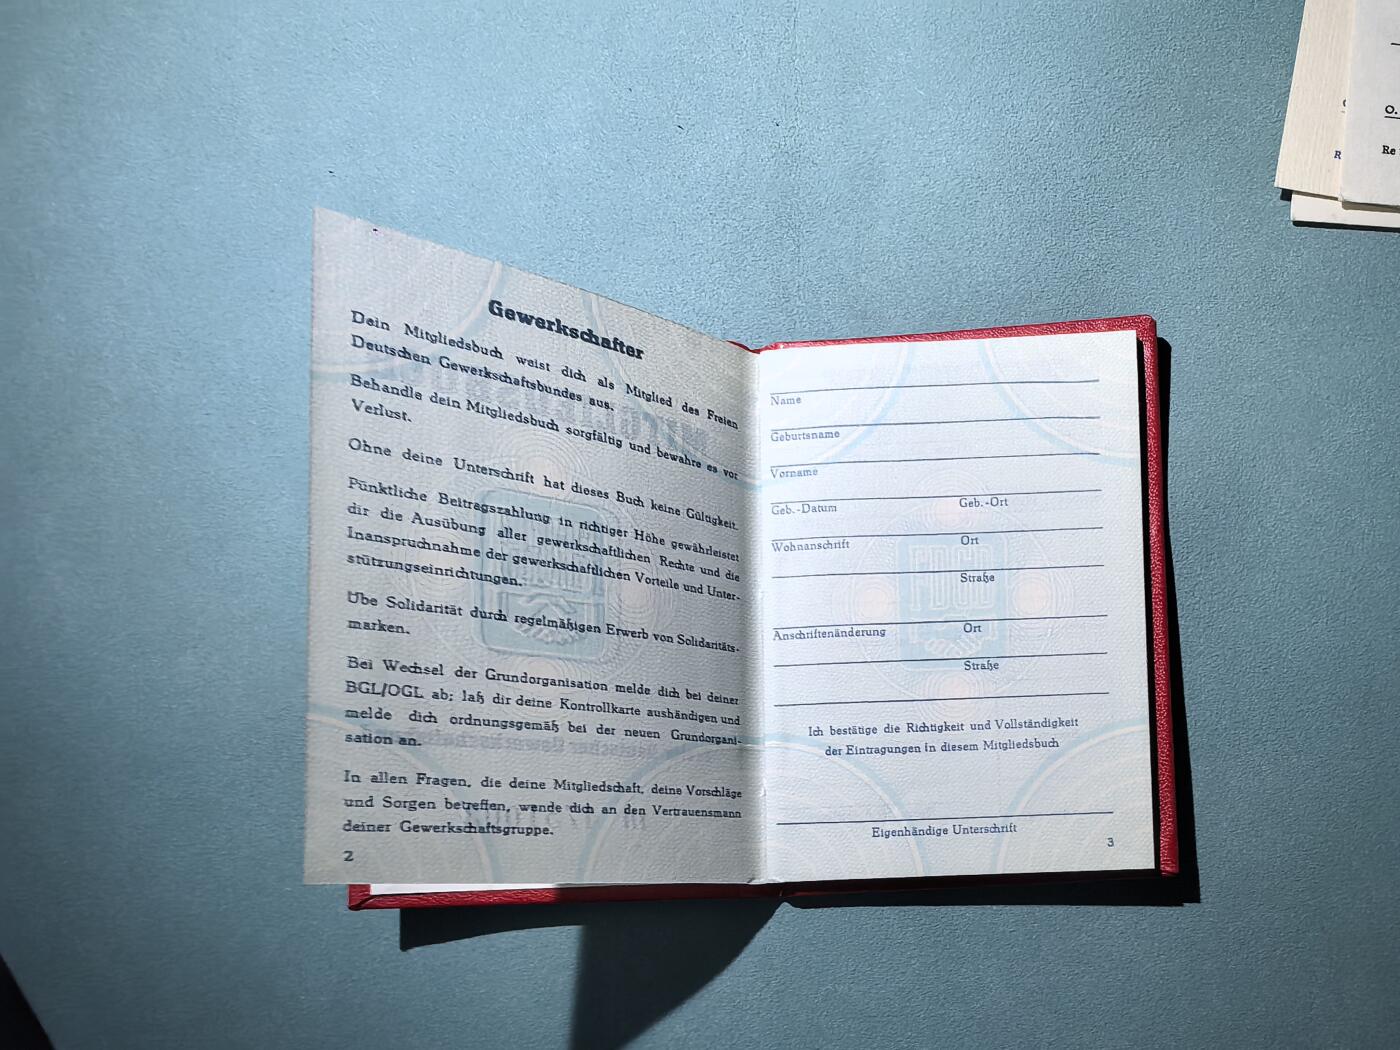 Gewerkschafter
Dein Mitgliedsbuch weist dich als Mitglied des Freien
Deutschen Gewerkschaftsbundes aus.
Behandle dein Mitgliedsbuch sorgfältig und bewahre es vor
Verlust.
Ohne deine Unterschrift hat dieses Buch keine Gültigkeit.
Pünktliche Beitragszahlung in richtiger Höhe gewährleistet
dir die Ausübung aller gewerkschaftlichen Rechte und die
Inanspruchnahme der gewerkschaftlichen Vorteile und Unter-
stützungseinrichtungen.
Übe Solidarität durch regelmäßigen Erwerb von Solidaritäts-
marken.
Bei Wechsel der Grundorganisation melde dich bei deiner
BGL/OGL ab; laß dir deine Kontrollkarte aushändigen und
melde dich ordnungsgemäß bei der neuen Grundorgani-
sation an.
In allen Fragen, die deine Mitgliedschaft, deine Vorschläge
und Sorgen betreffen, wende dich an den Vertrauensmann
deiner Gewerkschaftsgruppe.
2
Name
Geburtsname
Vorname
Geb.-Datum Geb.-Ort
Wohnanschrift Ort
Straße
FDGB
Anschriftenänderung Ort
Straße
Ich bestätige die Richtigkeit und Vollständigkeit
der Eintragungen in diesem Mitgliedsbuch
Eigenhändige Unterschrift
3
O.
R
Re